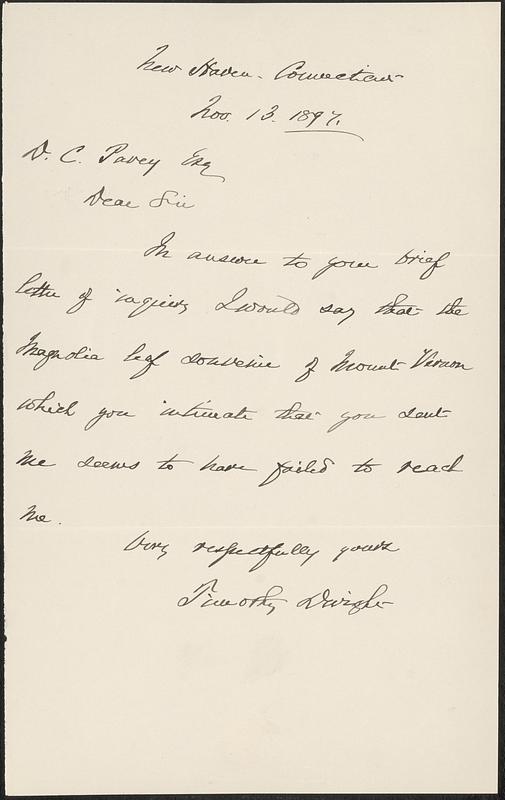 New Haven. Connecticut
Nov. 13. 1897.
D. C. Pavey Esq
Dear Sir
In answer to your brief
letter of inquiry I would say that the
Magnolia leaf souvenir of Mount Vernon
which you intimate that you sent
me seems to have failed to reach
me.
Very respectfully yours
Timothy Dwight